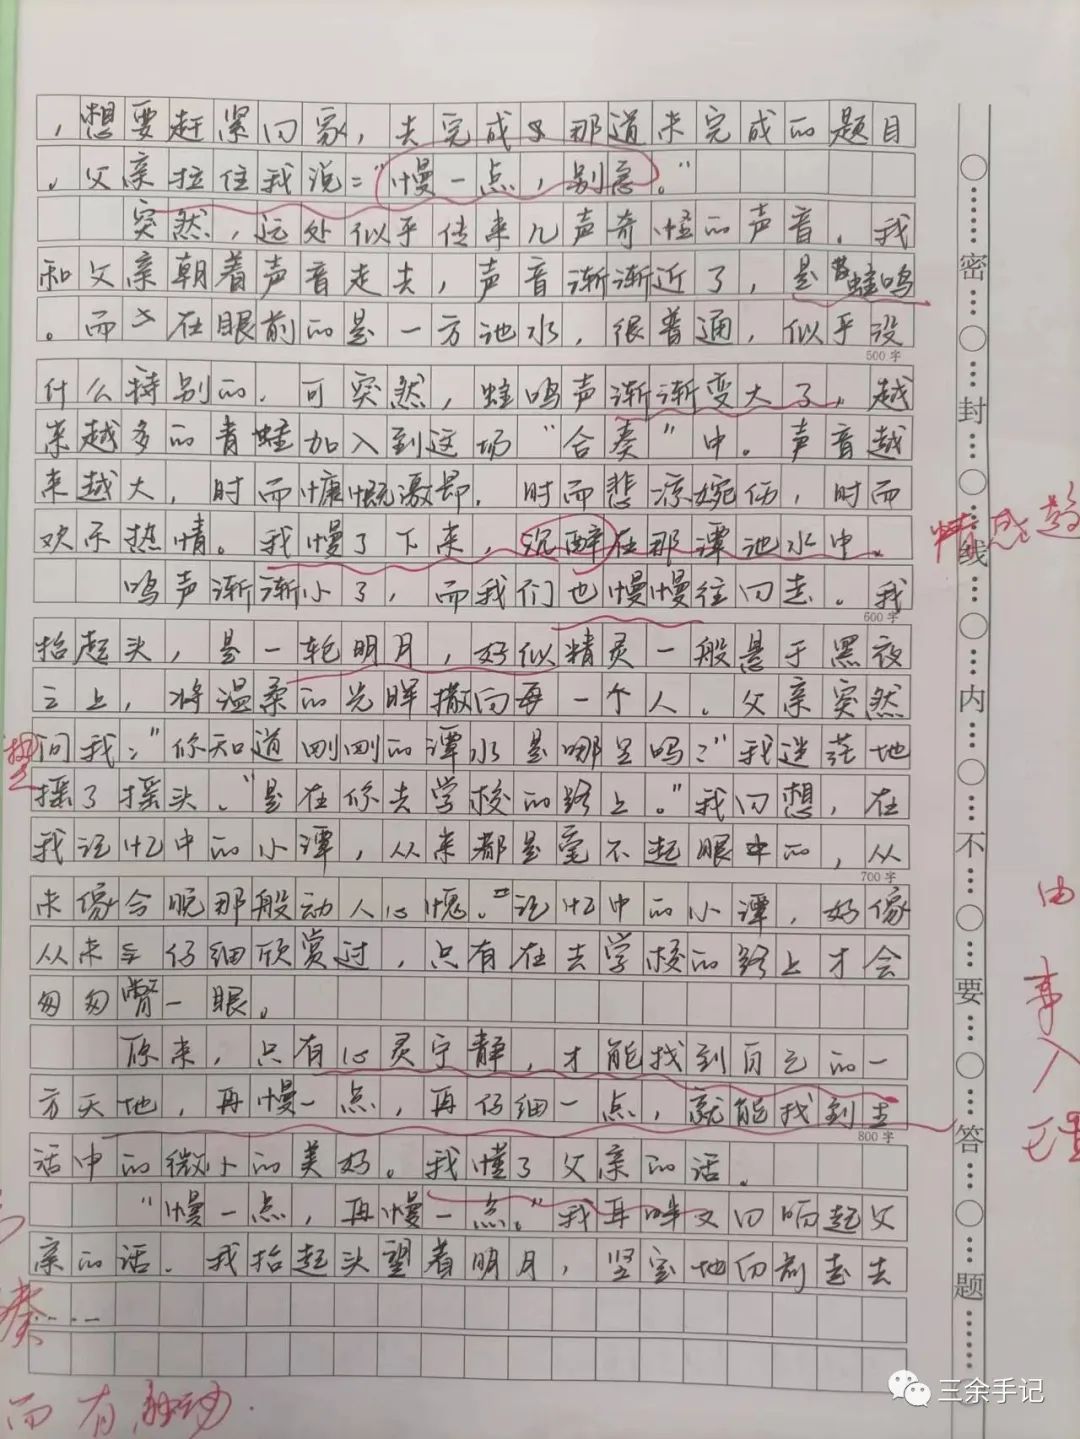 ，想要赶紧回家，去完成那道未完成的题目
。父亲拉住我说："慢一点，别急。"
突然，远处似乎传来几声奇怪的声音。我
和父亲朝着声音走去，声音渐渐近了，是蛙鸣
。而在眼前的是一方池水，很普通，似乎没
500字
什么特别的。可突然，蛙鸣声渐渐变大了，越
来越多的青蛙加入到这场"合奏"中。声音越
来越大，时而慷慨激昂，时而悲凉婉伤，时而
欢乐热情。我慢了下来，沉醉在那潭池水中。
鸣声渐渐小了，而我们也慢慢往回走。我
600字
抬起头，是一轮明月，好似精灵一般悬于黑夜
之上，将温柔的光晖撒向每一个人。父亲突然
问我："你知道刚刚的潭水是哪里吗？"我迷茫地
摇了摇头。"是在你去学校的路上。"我回想，在
我记忆中的小潭，从来都是毫不起眼的，从
700字
未像今晚那般动人心愧。记忆中的小潭，好像
从未仔细欣赏过，只有在去学校的路上才会
匆匆瞥一眼。
原来，只有心灵宁静，才能找到自己的一
方天地，再慢一点，再仔细一点，就能找到生
800字
活中的微小的美好。我懂了父亲的话。
"慢一点，再慢一点。"我耳畔又回响起父
亲的话。我抬起头望着明月，坚定地向前走去
……
密封线内不要答题
情感
由
事
入
理
奏
而有
三余手记